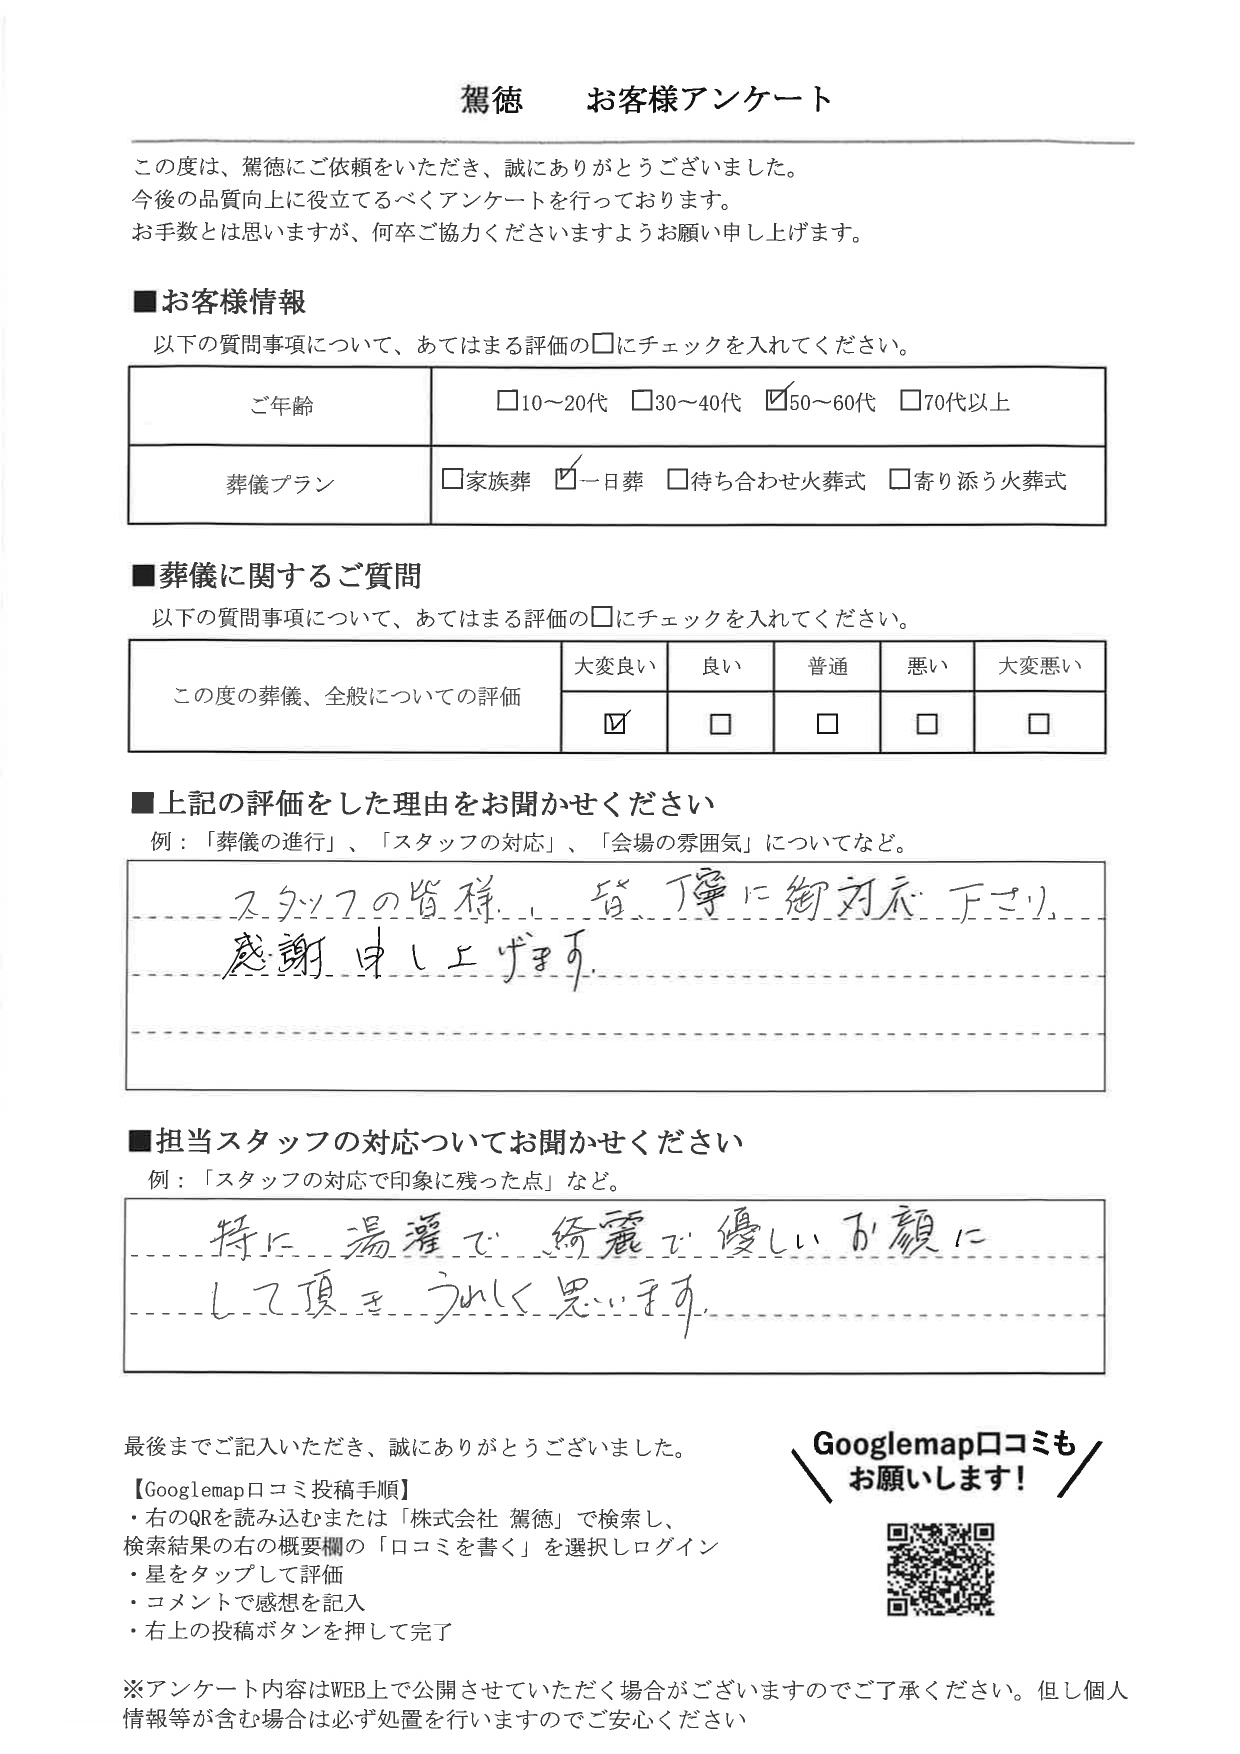 駕徳　　お客様アンケート
この度は、駕徳にご依頼をいただき、誠にありがとうございました。
今後の品質向上に役立てるべくアンケートを行っております。
お手数とは思いますが、何卒ご協力くださいますようお願い申し上げます。
■お客様情報
以下の質問事項について、あてはまる評価の□にチェックを入れてください。
ご年齢　□10～20代　□30～40代　☑50～60代　□70代以上
葬儀プラン　□家族葬　☑一日葬　□待ち合わせ火葬式　□寄り添う火葬式
■葬儀に関するご質問
以下の質問事項について、あてはまる評価の□にチェックを入れてください。
大変良い　良い　普通　悪い　大変悪い
この度の葬儀、全般についての評価
☑　□　□　□　□
■上記の評価をした理由をお聞かせください
例：「葬儀の進行」、「スタッフの対応」、「会場の雰囲気」についてなど。
スタッフの皆様、皆、丁寧に御対応下さり、
感謝申し上げます。
■担当スタッフの対応ついてお聞かせください
例：「スタッフの対応で印象に残った点」など。
特に湯灌で綺麗で優しいお顔に
して頂きうれしく思います。
最後までご記入いただき、誠にありがとうございました。
Googlemap口コミも
お願いします！
【Googlemap口コミ投稿手順】
・右のQRを読み込むまたは「株式会社 駕徳」で検索し、
検索結果の右の概要欄の「口コミを書く」を選択しログイン
・星をタップして評価
・コメントで感想を記入
・右上の投稿ボタンを押して完了
※アンケート内容はWEB上で公開させていただく場合がございますのでご了承ください。但し個人
情報等が含む場合は必ず処置を行いますのでご安心ください